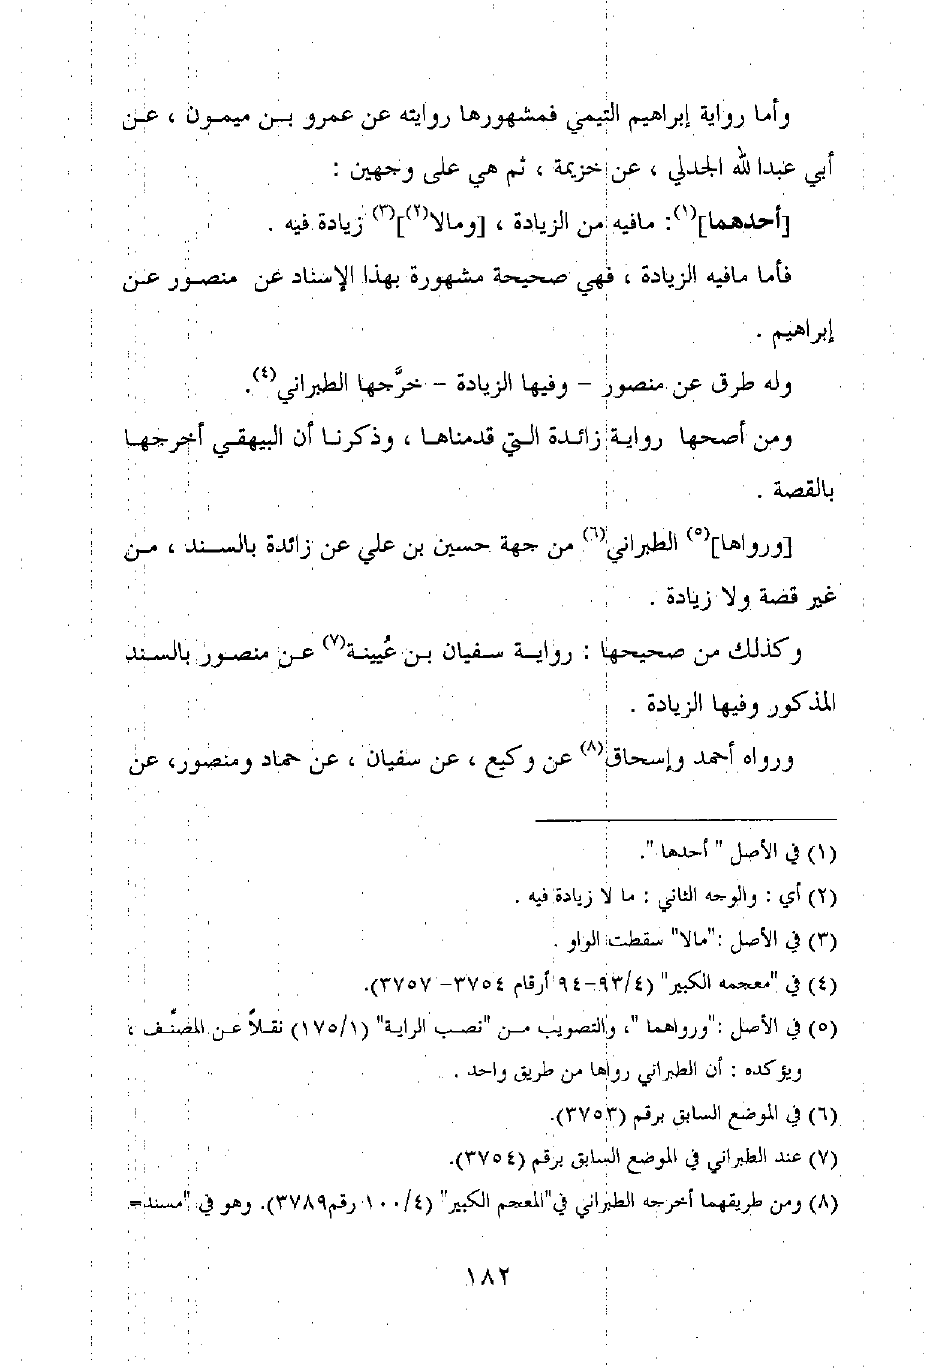 وأما رواية إبراهيم التيمي فمشهورها روايته عن عمرو بـن ميمـون ، عـن
أبي عبدا لله الجدلي ، عن خزيمة ، ثم هي على وجهين :
[أحدهما](١): مافيه من الزيادة ، [ومالا(٢)](٣) زيادة فيه .
فأما مافيه الزيادة ، فهي صحيحة مشهورة بهذا الإسناد عن منصـور عـن
إبراهيم .
وله طرق عن منصور – وفيها الزيادة – خرَّجها الطبراني(٤).
ومن أصحها روايـة زائـدة الـتي قدمناهـا ، وذكرنـا أن البيهقـي أخرجهـا
بالقصة .
[ورواها](٥) الطبراني(٦) من جهة حسين بن علي عن زائدة بالسـند ، مـن
غير قصة ولا زيادة .
وكذلك من صحيحها : روايـة سـفيان بـن عُيينـة(٧) عـن منصـور بالسـند
المذكور وفيها الزيادة .
ورواه أحمد وإسحاق(٨) عن وكيع ، عن سفيان ، عن حماد ومنصور، عن
(١) في الأصل " أحدها ".
(٢) أي : والوجه الثاني : ما لا زيادة فيه .
(٣) في الأصل :"مالا" سقطت الواو .
(٤) في "معجمه الكبير" (٩٣/٤–٩٤ أرقام ٣٧٥٤– ٣٧٥٧).
(٥) في الأصل :"ورواهما "، والتصويب مـن "نصب الراية" (١٧٥/١) نقـلاً عـن المصنَّف ،
ويؤكده : أن الطبراني رواها من طريق واحد .
(٦) في الموضع السابق برقم (٣٧٥٣).
(٧) عند الطبراني في الموضع السابق برقم (٣٧٥٤).
(٨) ومن طريقهما أخرجه الطبراني في"المعجم الكبير" (١٠٠/٤ رقم٣٧٨٩). وهو في "مسند=
١٨٢